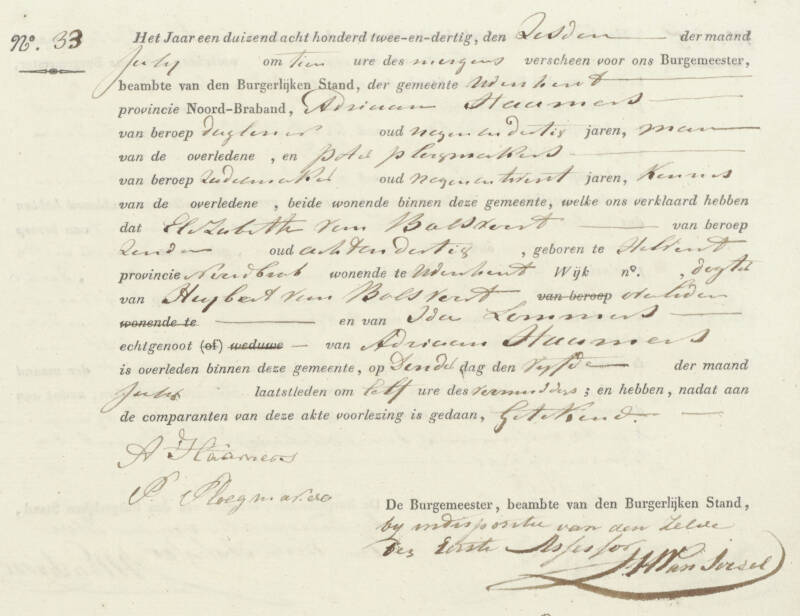 N.o 33 Het Jaar een duizend acht honderd twee-en-dertig, den Zesden der maand
July om tien ure des morgens verscheen voor ons Burgemeester,
beambte van den Burgerlijken Stand, der gemeente Udenhout
provincie Noord-Braband, Adriaan Haamers
van beroep daglener oud negenendertig jaren, man
van de overledene , en Peter Ploegmakers
van beroep oud negenentwent jaren, Kennis
van de overledene , beide wonende binnen deze gemeente, welke ons verklaard hebben
dat Elizabeth van Balsvort van beroep
Zonder oud achtendertig , geboren te Helvort
provincie Noordbrab wonende te Udenhout Wijk n.o , dogter
van Huybert van Balsvort van beroep overleden
wonende te en van Ida Lommers
echtgenoot (of) weduwe van Adriaan Haamers
is overleden binnen deze gemeente, op Dondedag den vyfde der maand
July laatstleden om half ure des vermiddags; en hebben, nadat aan
de comparanten van deze akte voorlezing is gedaan, Getekend.
A Haamers
P Ploegmakers
De Burgemeester, beambte van den Burgerlijken Stand,
by indispositie van den Zelve
den Eerste Assessor
van Iersel